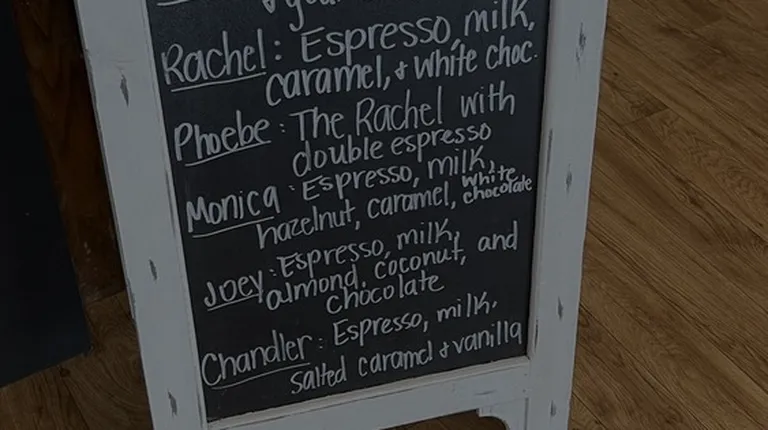 Rachel: Espresso, milk,
caramel, & white choc.
Phoebe: The Rachel with
double espresso
Monica: Espresso, milk,
hazelnut, caramel, white chocolate
Joey: Espresso, milk,
almond, coconut, and
chocolate
Chandler: Espresso, milk,
salted caramel & vanilla